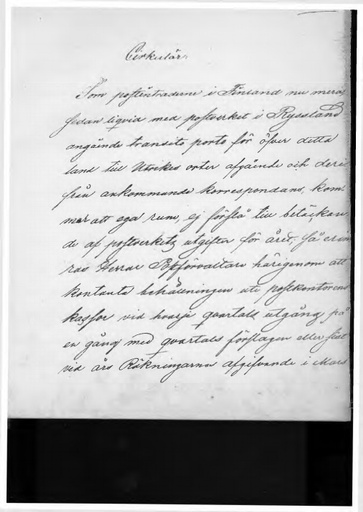 Cirkulär.
Som postinträderne i Finland nu mera,
sedan liquid med postverket i Ryssland
angående transito porto för öfver detta
land till Utrikes orter afgående och deri
från ankommande korrespondans, kom
mer att ega rum, ej förslå till betäckan
de af postverkets utgifter för året, så
Herrar Postförvaltare härigenom att
kontanta behållningen uti postkontorens
kassor vid hvarje qvartals utgång på
en gång med qvartals förslagen eller sist
vid års Räkningarnes afgifvande i Mars